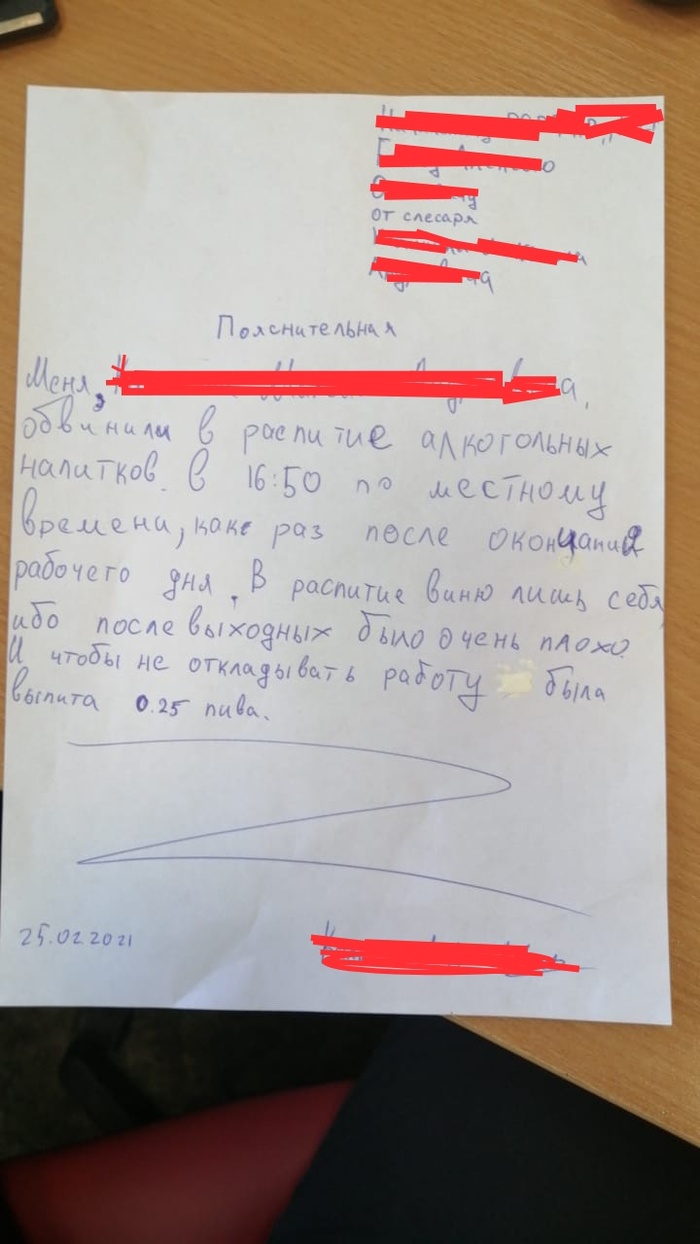 от слесаря
Пояснительная
Меня,
обвинили в распитие алкогольных
напитков. в 16:50 по местному
времени, как раз после окончания
рабочего дня. В распитие виню лишь себя,
ибо после выходных было очень плохо.
И чтобы не откладывать работу была
выпита 0.25 пива.
25.02.2021